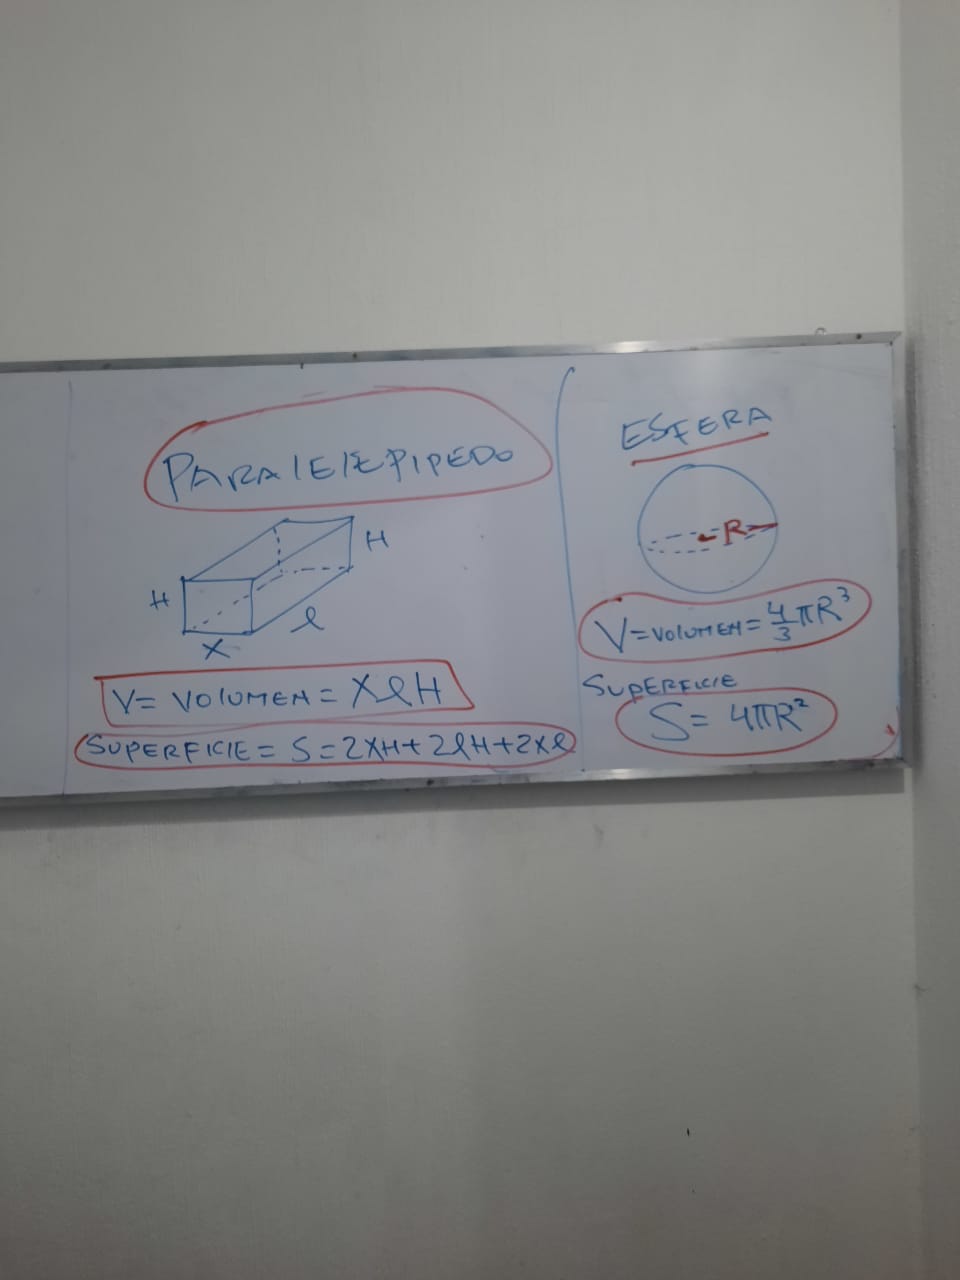 PARALELEPIPEDO
H
H
l
X
V= VOLUMEN = XlH
SUPERFICIE = S=2XH+2lH+2Xl
ESFERA
R
V=VOLUMEN=4/3πR³
SUPERFICIE
S= 4πR²